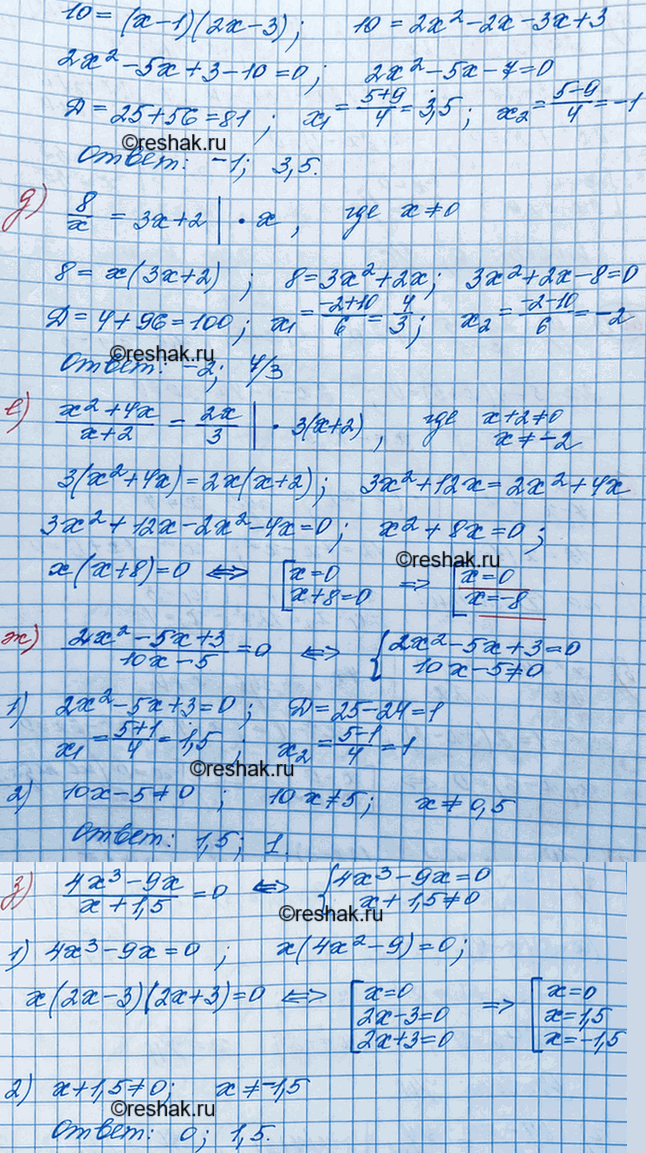 10 = (x-1)(2x-3); 10 = 2x² - 2x - 3x + 3
2x² - 5x + 3 - 10 = 0; 2x² - 5x - 7 = 0
D = 25 + 56 = 81; x₁ = (5+9)/4 = 3,5; x₂ = (5-9)/4 = -1
©reshak.ru
Ответ: -1; 3,5.
д) 8/x = 3x+2 | · x, где x ≠ 0
8 = x(3x+2); 8 = 3x² + 2x; 3x² + 2x - 8 = 0
D = 4 + 96 = 100; x₁ = (-2+10)/6 = 4/3; x₂ = (-2-10)/6 = -2
©reshak.ru
Ответ: -2; 4/3
е) (x²+4x)/(x+2) = 2x/3 | · 3(x+2), где x+2≠0
x ≠ -2
3(x²+4x) = 2x(x+2); 3x² + 12x = 2x² + 4x
3x² + 12x - 2x² - 4x = 0; x² + 8x = 0;
©reshak.ru
x(x+8) = 0 ⇔ [x=0 ⇒ [x=0
x+8=0 x=-8
ж) (2x²-5x+3)/(10x-5) = 0 ⇔ {2x²-5x+3=0
10x-5≠0
1) 2x² - 5x + 3 = 0; D = 25 - 24 = 1
x₁ = (5+1)/4 = 1,5; x₂ = (5-1)/4 = 1
©reshak.ru
2) 10x-5≠0; 10x≠5; x≠0,5
Ответ: 1,5; 1.
з) (4x³-9x)/(x+1,5) = 0 ⇔ {4x³-9x=0
x+1,5≠0
©reshak.ru
1) 4x³-9x=0; x(4x²-9)=0;
x(2x-3)(2x+3)=0 ⇔ [x=0 ⇒ [x=0
2x-3=0 x=1,5
2x+3=0 x=-1,5
2) x+1,5≠0; x≠-1,5
©reshak.ru
Ответ: 0; 1,5.